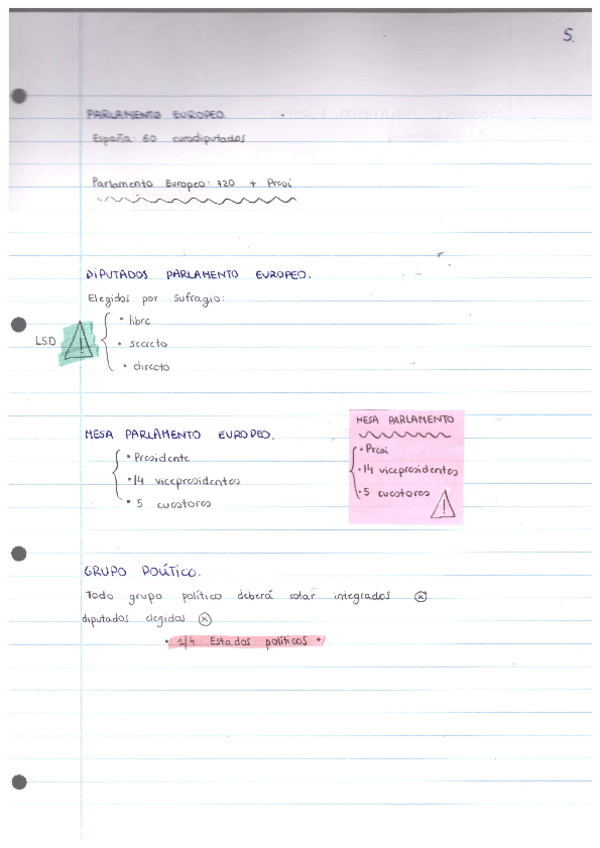 5.
PARLAMENTO EUROPEO.
España: 60 eurodiputados
Parlamento Europeo: 720 + Presi
DIPUTADOS PARLAMENTO EUROPEO.
Elegidos por sufragio:
• libre
LSD
• secreto
• directo
MESA PARLAMENTO EUROPEO.
• Presidente
• 14 vicepresidentes
• 5 cuestores
MESA PARLAMENTO
• Presi
• 14 vicepresidentes
• 5 cuestores
GRUPO POLÍTICO.
Todo grupo político deberá estar integrados
diputados elegidos
• 1/4 Estados políticos •